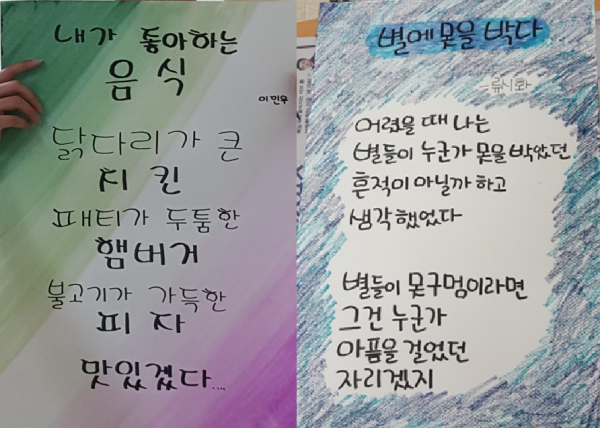 내가 좋아하는
음식
이민우
닭다리가 큰
치킨
패티가 두툼한
햄버거
불고기가 가득한
피자
맛있겠다...
별에 못을 박다
-류시화
어렸을 때 나는
별들이 누군가 못을 박았던
흔적이 아닐까 하고
생각했었다
별들이 못구멍이라면
그건 누군가
아픔을 걸었던
자리겠지